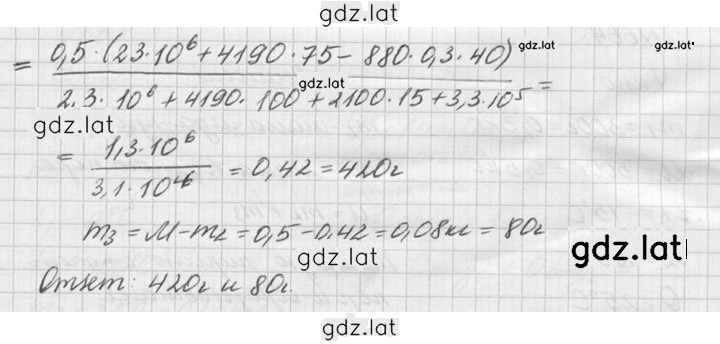 gdz.lat
= 0,5·(23·10⁶+4190·75− 880·0,3·40) / 2.3·10⁶+4190·100+2100·15+3,3·10⁵ =
gdz.lat gdz.lat gdz.lat
gdz.lat
= 1,3·10⁶ / 3,1·10⁶ = 0,42 = 420г
m₃ = M−m₂ = 0,5−0.42 = 0,08кг = 80г
gdz.lat gdz.lat
gdz.lat
Ответ: 420г и 80г.
gdz.lat